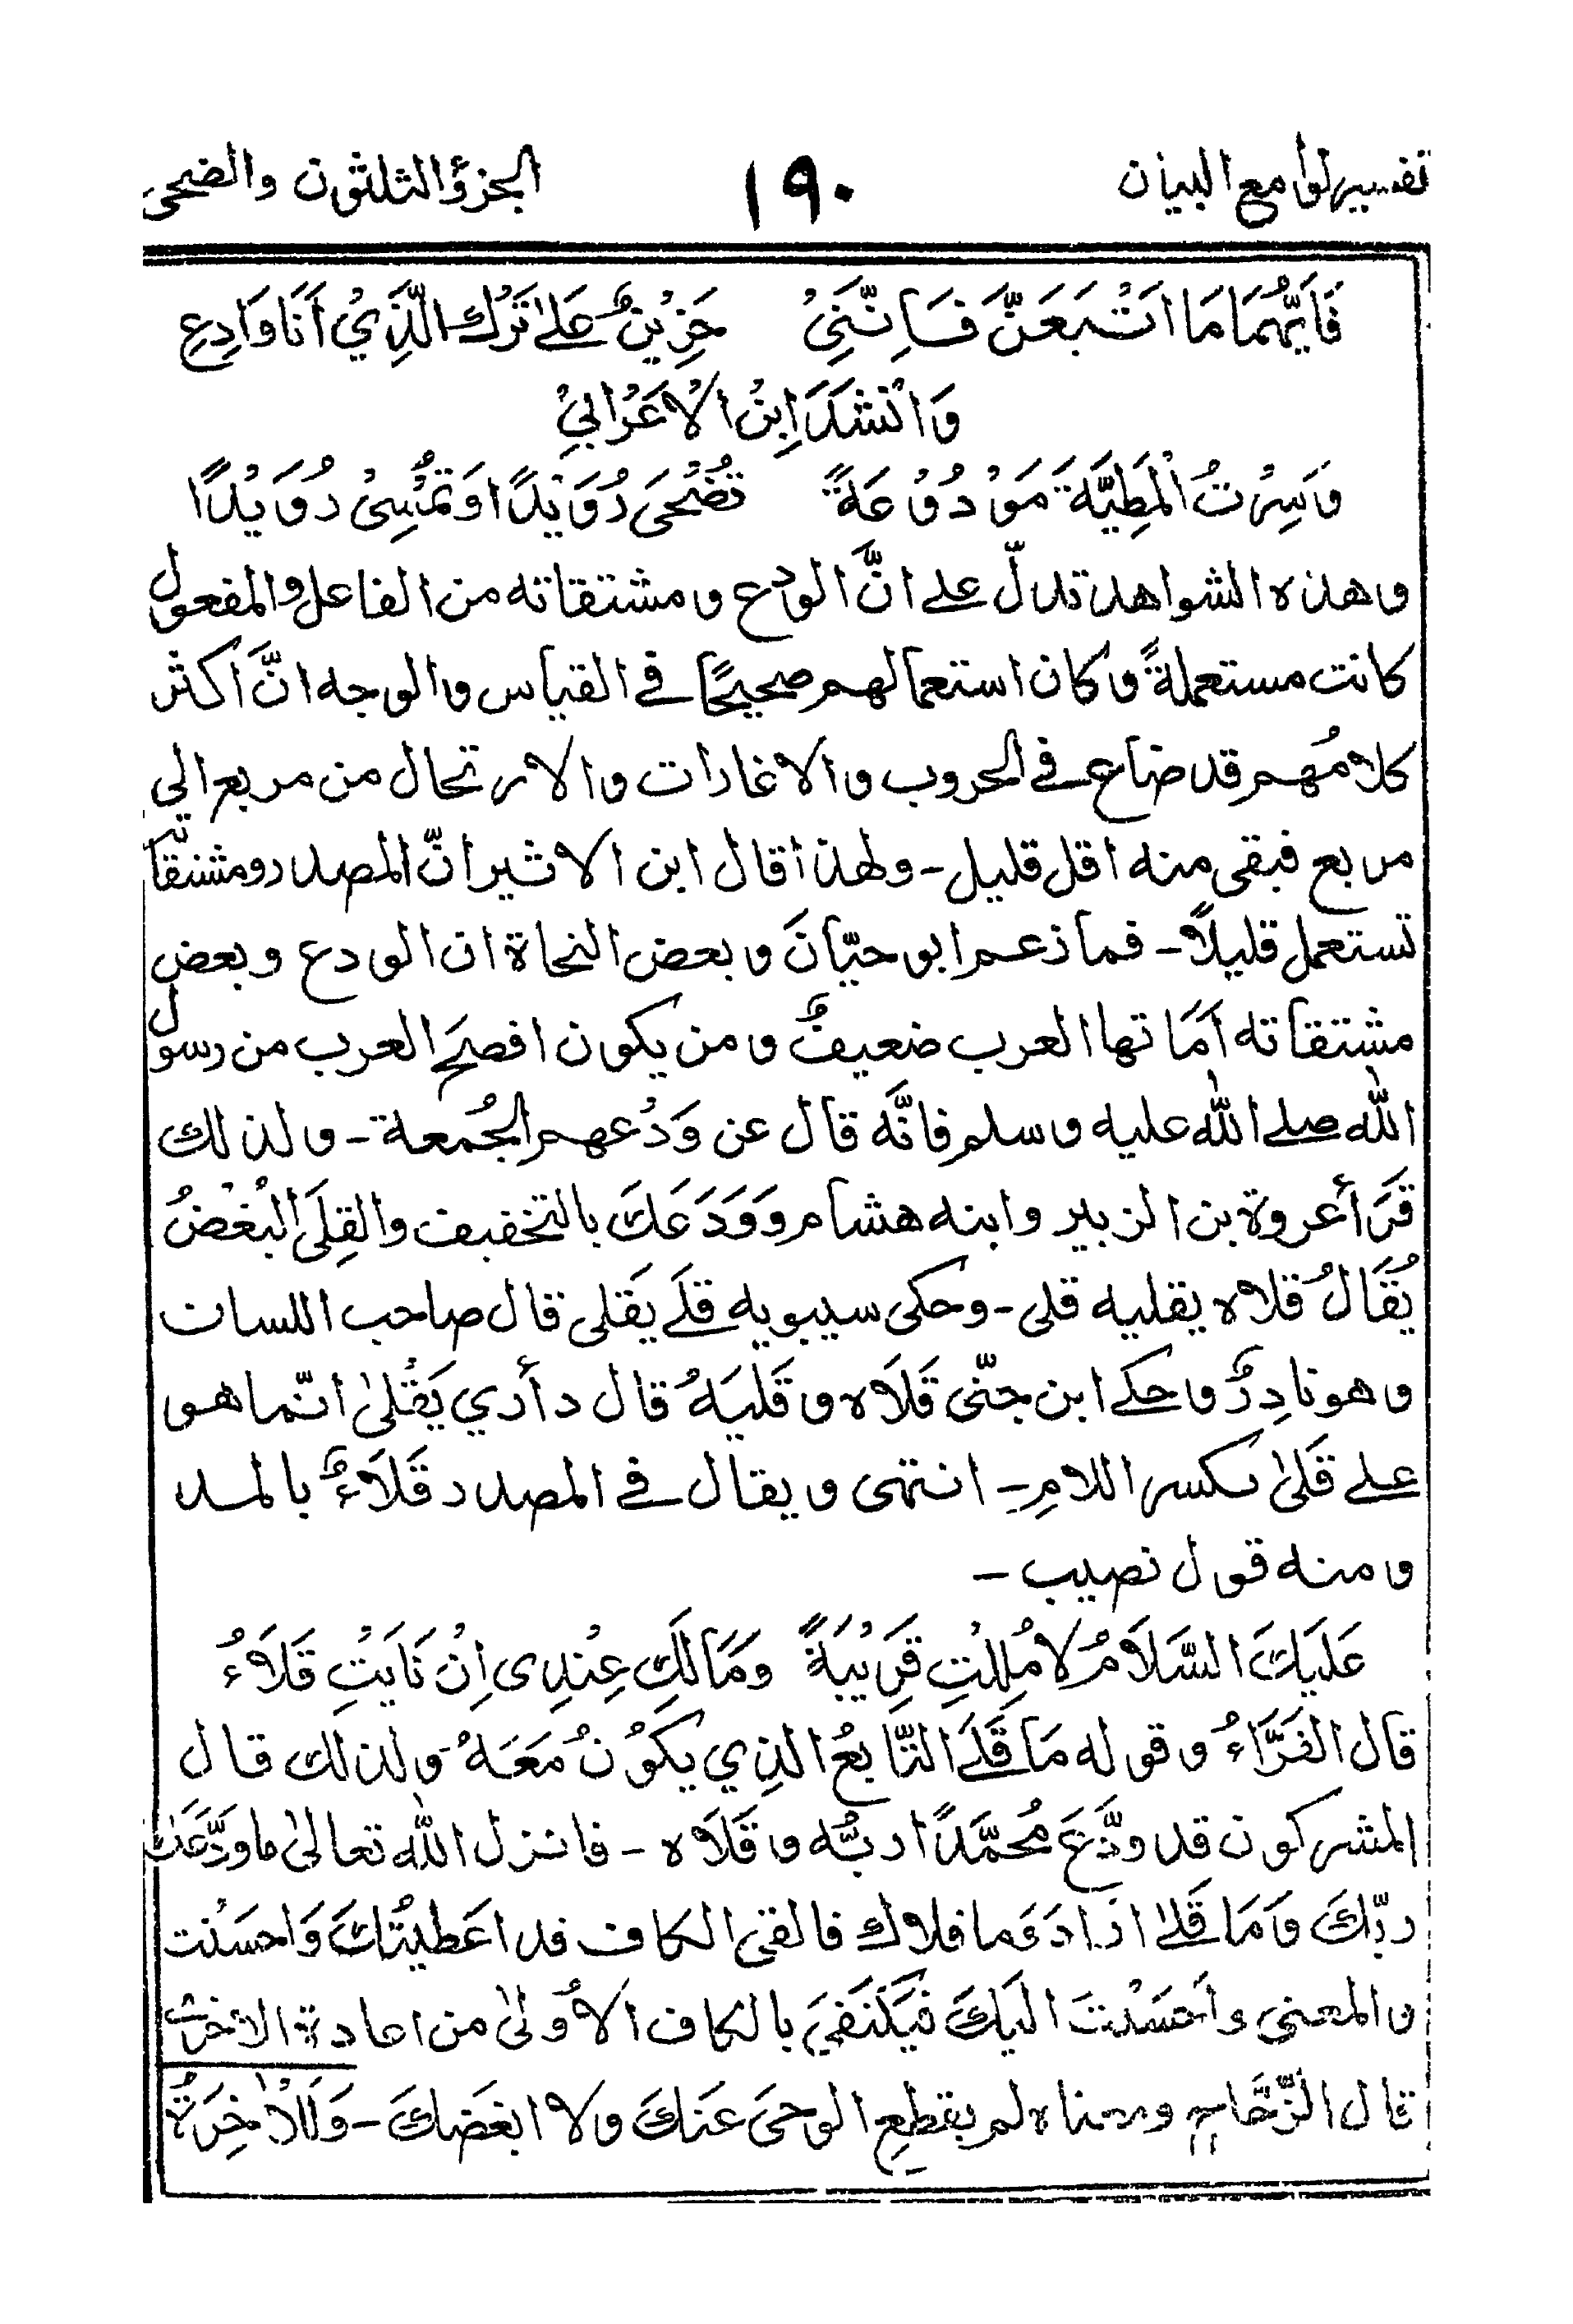 تفسير لوامع البيان
١٩٠
الجزؤ الثلثون والضحى
فَاَيُّهُمَا مَا اَتْبَعَنَّ فَاِنَّنِيْ حَزِيْنٌ عَلىٰ تَرْكِ الَّذِيْ اَنَا وَادِعٌ
وَانْشَدَ اِبْنُ الْاَعْرَابِيْ
وَسِرْتُ الْمَطِيَّةَ مَوْدُوْعَةً تُضْحَى رُوَيْدًا وَتُمْسِىْ رُوَيْدًا
وهذه الشواهد تدلّ على انَّ الودع ومشتقاته من الفاعل والمفعول
كانت مستعملةً وكان استعمالهم صحيحًا في القياس والوجه انَّ اكثر
كلامُهم قد ضاع في الحروب والاغارات والارتحال من مربع الي
مربع فبقى منه اقل قليل - ولهذا قال ابن الاثير انّ المصدر ومشتقّا
تستعمل قليلاً - فما زعم ابو حيّانَ وبعض النحاة ان الودع وبعض
مشتقاته اَمَاتها العرب ضعيفٌ ومن يكون افصحَ العرب من رسول
الله صلے الله عليه وسلم فانَّه قال عن وَدْعهم الجُمعة - ولذلك
قَرَأ عروة بن الزبير وابنه هشام وَوَدَعَكَ بالتخفيف والقِلَى الْبُغْضُ
يُقَالُ قلاه يقليه قلى - وحكى سيبويه قلَے يَقلى قال صاحب اللسان
وهو نادِرٌ وحكے ابن جنّى قَلَاه وقَليَهُ قال وأري يَقْلىٰ انّما هو
علے قَلىٰ بكسر اللامِ - انتهى ويقال في المصدر قَلَاءٌ بالمد
ومنه قول نصيب -
عَلَيْكَ السَّلَامُ لَا مُلِلْتِ قَرِيْبَةً وَمَا لَكِ عِنْدِى اِنْ نَايَتِ قَلَاءُ
قال الفَرَّاءُ وقوله مَا قَلَے التَّابعُ الذِي يكوُنُ مَعَهُ ولذلك قال
المشركون قد ودَّعَ مُحمَّدًا ربُّه وقَلَاه - فانزل الله تعالىٰ ما ودَّعَكَ
ربّكَ وَمَا قَلےٰ ارادَ وَما قلاك فالقى الكاف قد اعَطيتُكَ وَاحسَنْت
والمعنى واَحسَنْتَ اليكَ فيَكْتَفيَ بالكاف الاُولىٰ من اعادة الاخرٰى
قال الزَّجَّاج ومعناه لم يقطعِ الوحىَ عنَكَ ولا ابغَضكَ - وَلَلْاٰخِرَةُ